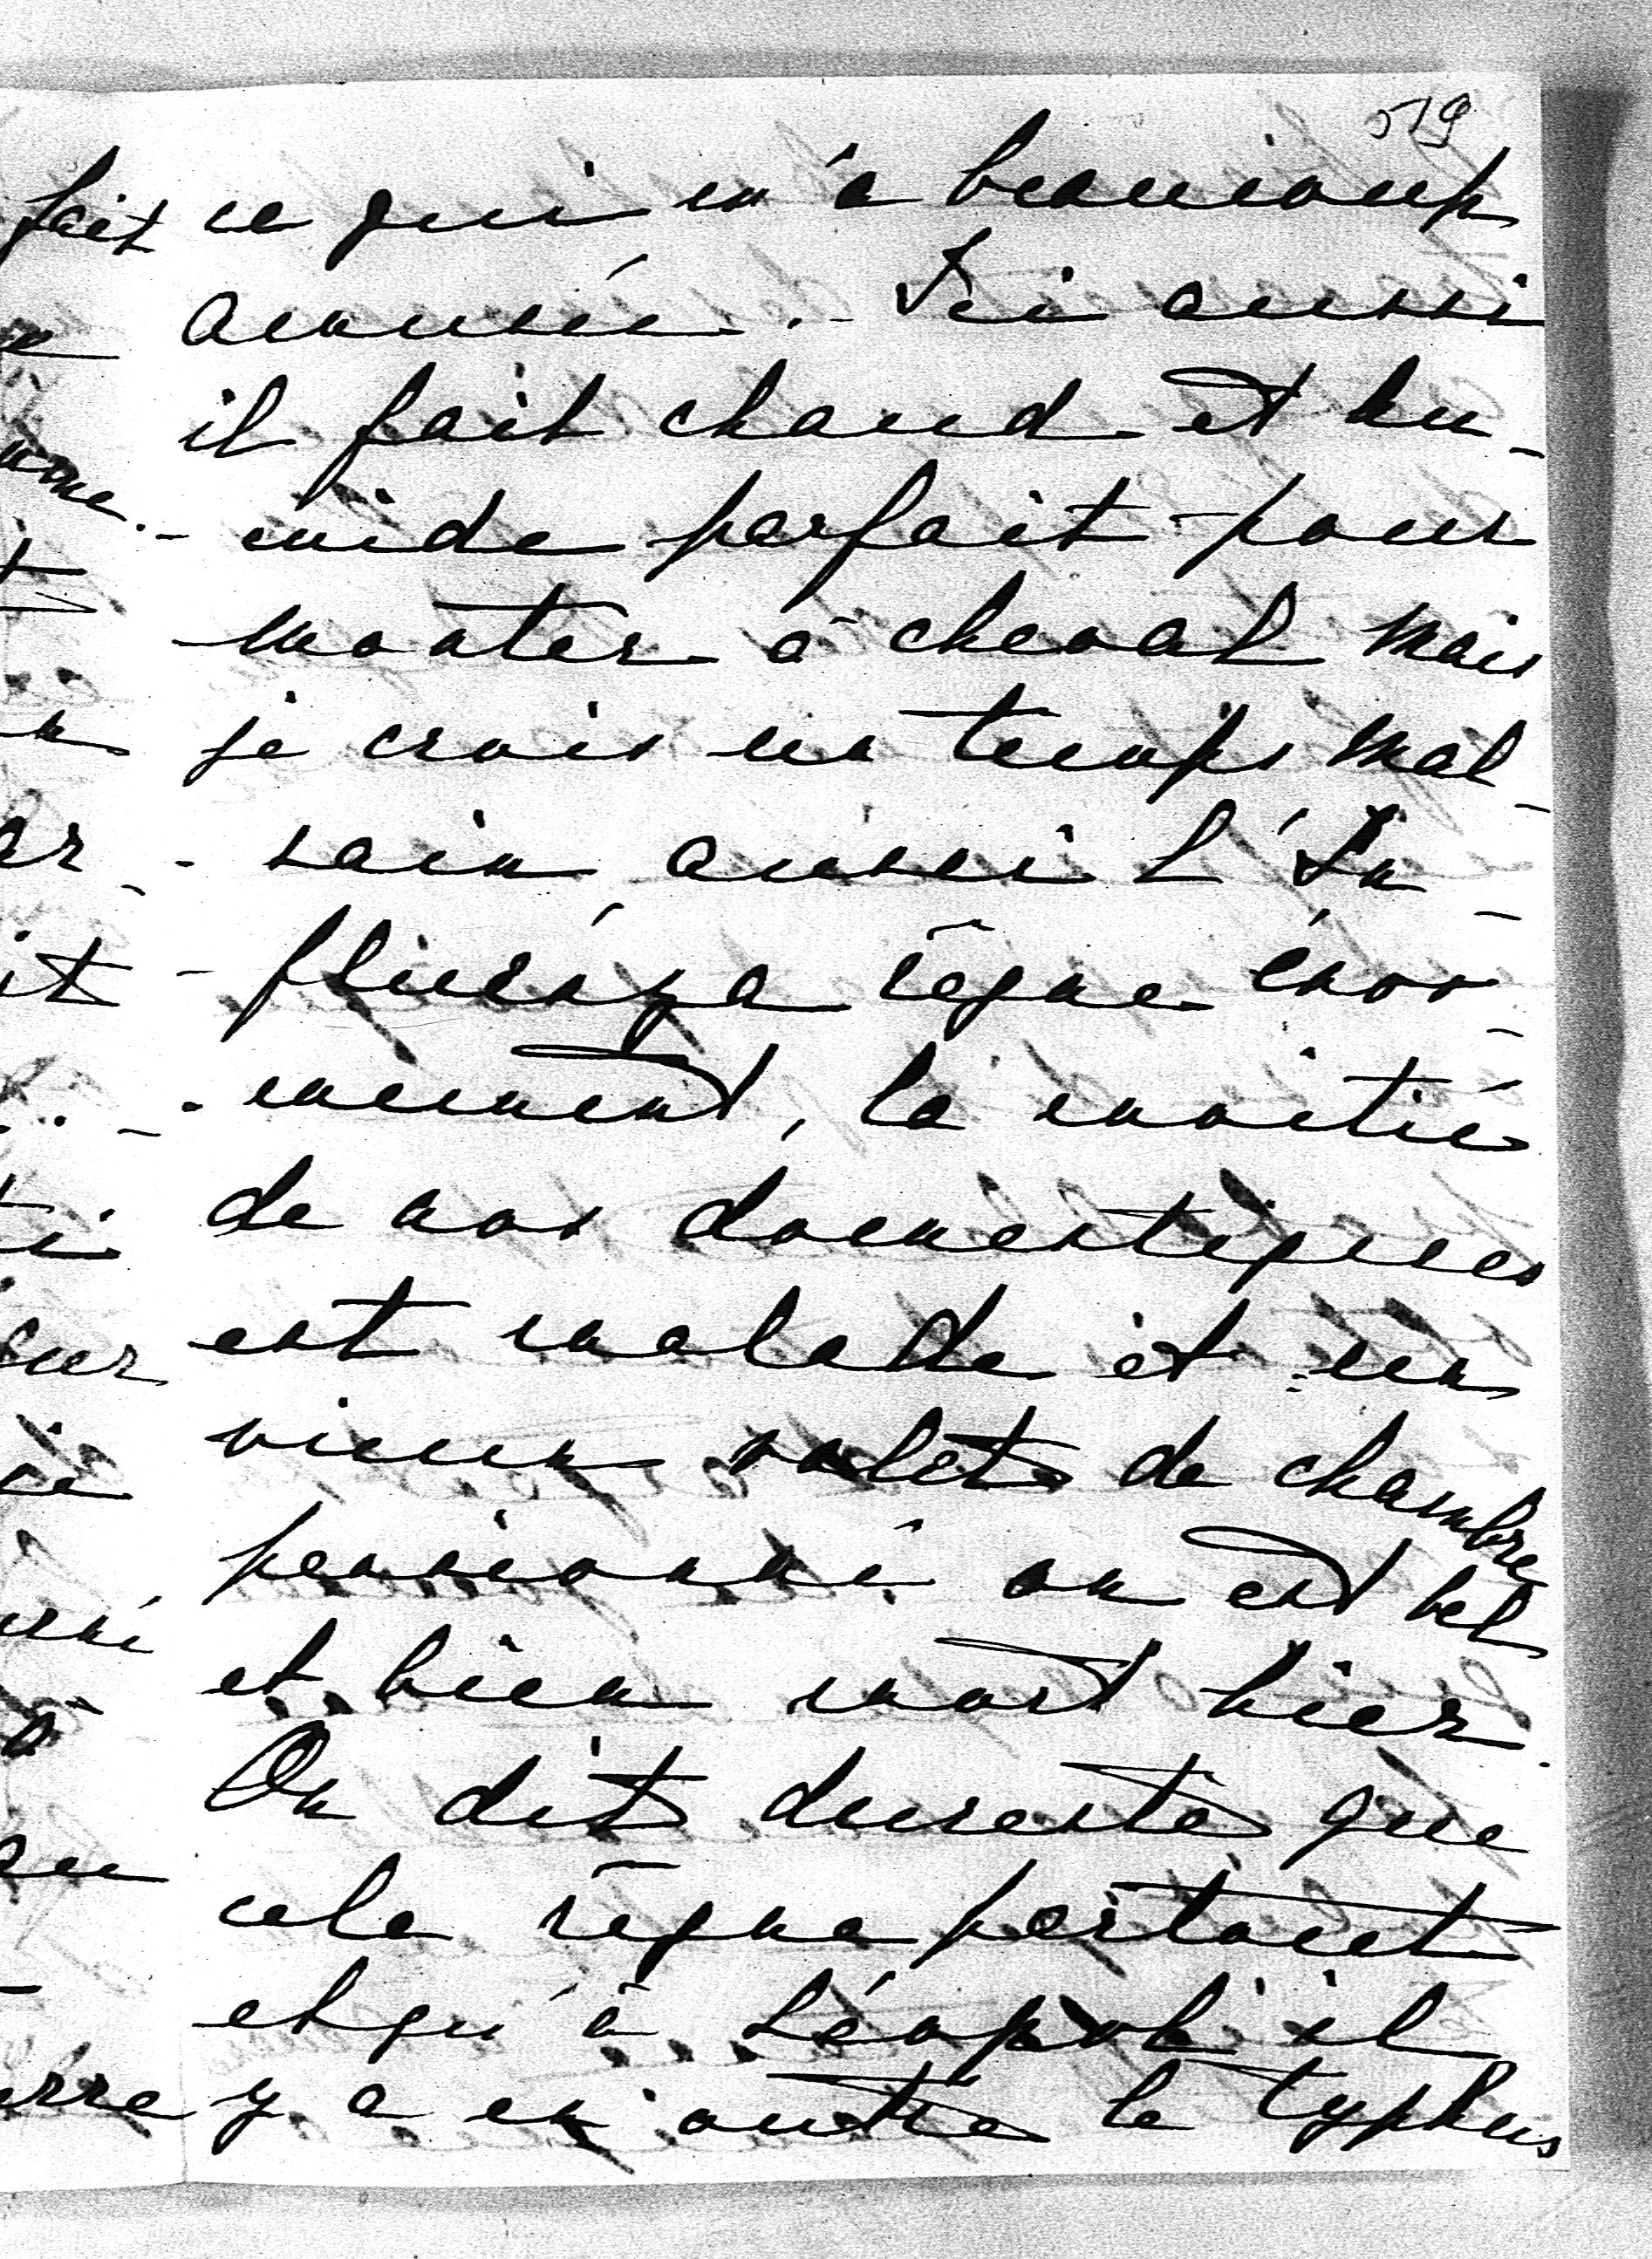 519
ce qui m'a beaucoup
amusée. - Ici aussi
il fait chaud et hu-
- mide parfait pour
monter à cheval mais
je crois un temps mal-
- sain, aussi l'In-
- fluénza règne énor-
- mement, la moitié
de nos domestiques
est malade et un
vieux valet de chambre
pensionné en est bel
et bien mort hier.
On dit dureste que
cela règne partout
et qu'à Léopol il
y a en outre le typhus